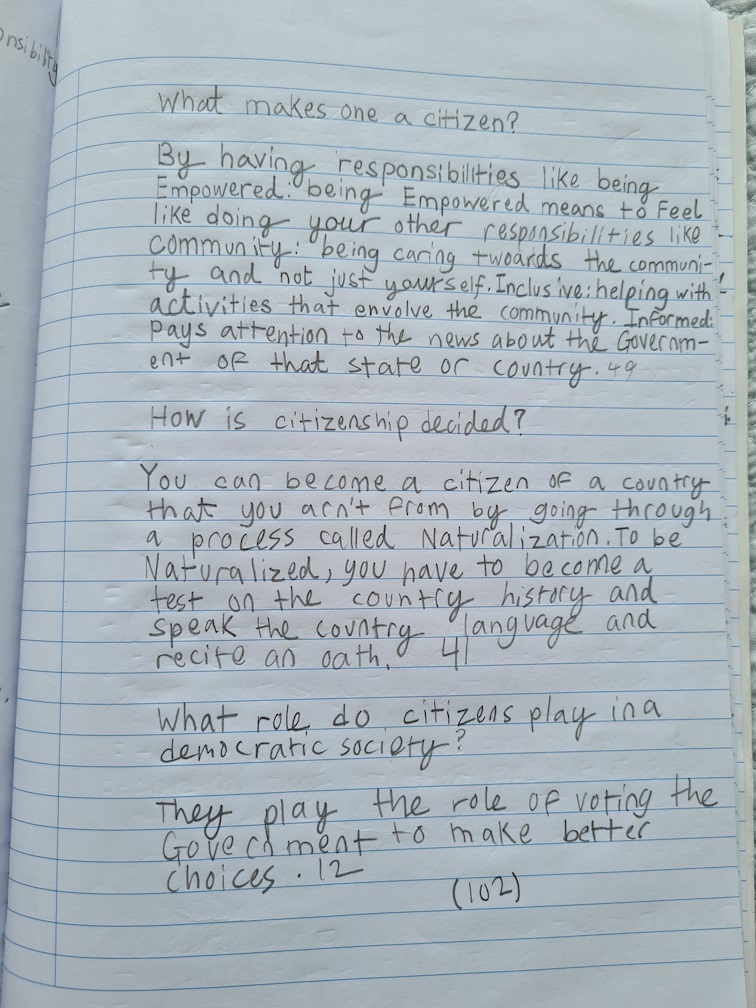 onsibility
What makes one a citizen?
By having responsibilities like being
Empowered: being Empowered means to Feel
like doing your other responsibilities like
Community: being caring twoards the communi-
ty and not just yourself. Inclusive: helping with
activities that envolve the community. Informed:
Pays attention to the news about the Governm-
ent of that state or country. 49
How is citizenship decided?
You can become a citizen of a country
that you arn't from by going through
a process called Naturalization. To be
Naturalized, you have to become a
test on the country history and
speak the country language and
recite an oath. 41
What role do citizens play in a
democratic society?
They play the role of voting the
Government to make better
choices. 12
(102)